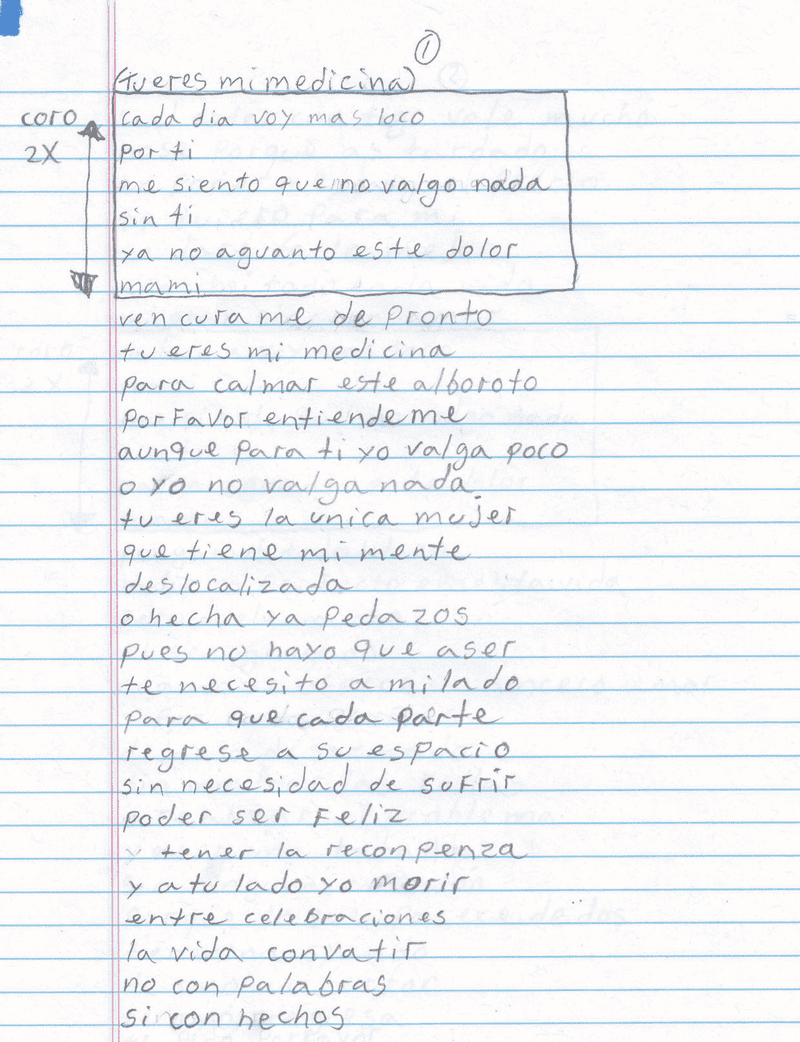 ①
(tu eres mi medicina)
coro
2X
cada dia voy mas loco
por ti
me siento que no valgo nada
sin ti
ya no aguanto este dolor
mami
ven cura me de pronto
tu eres mi medicina
para calmar este alboroto
por Favor entiende me
aunque para ti yo valga poco
o yo no valga nada.
tu eres la unica mujer
que tiene mi mente
deslocalizada
o hecha ya pedazos
pues no hayo que aser
te necesito a mi lado
para que cada parte
regrese a su espacio
sin necesidad de sufrir
poder ser Feliz
y tener la reconpenza
y a tu lado yo morir
entre celebraciones
la vida convatir
no con palabras
si con hechos